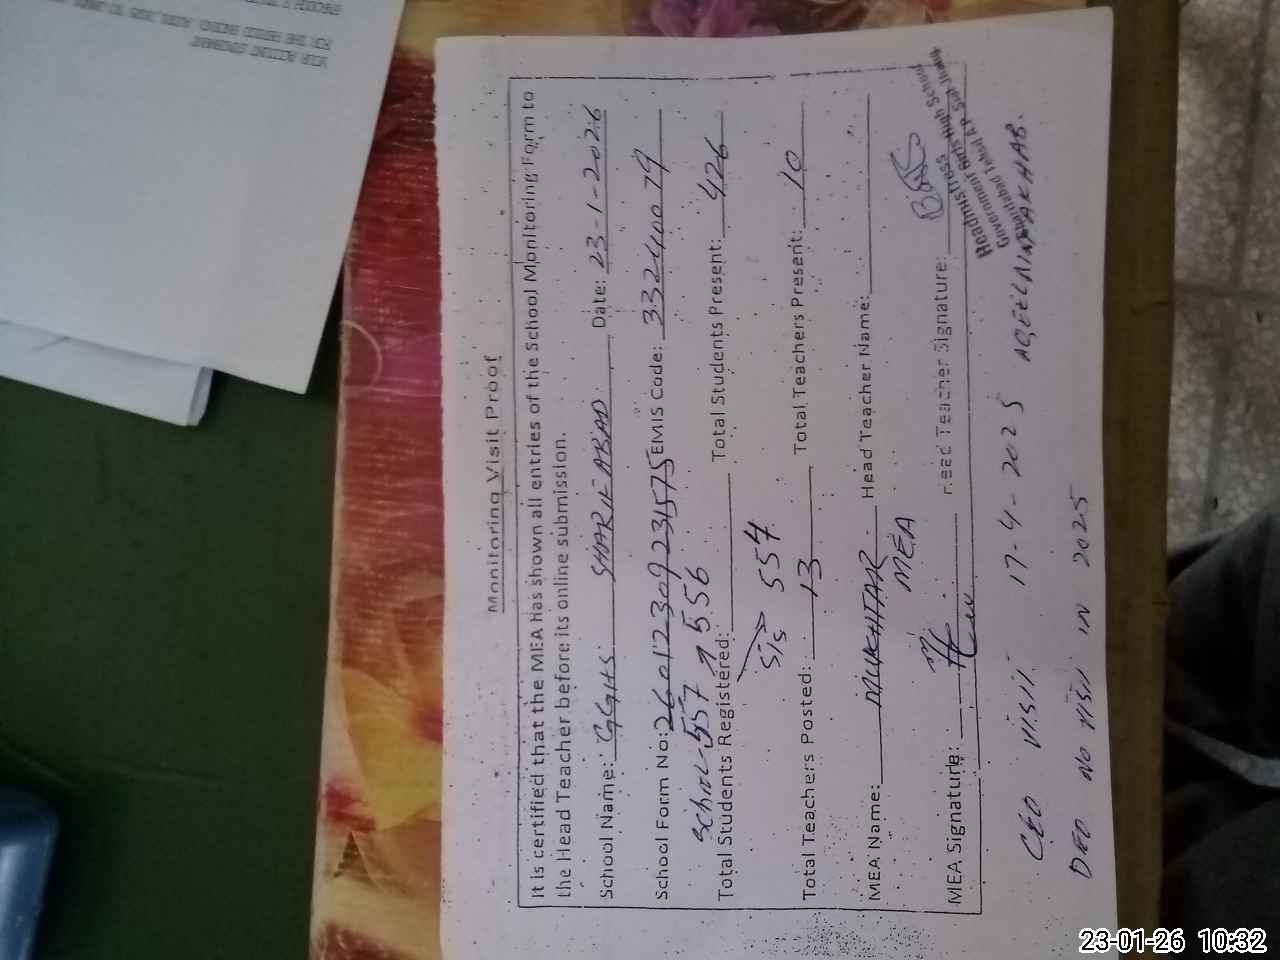 Monitoring Visit Proof
It is certified that the MEA has shown all entries of the School Monitoring Form to
the Head Teacher before its online submission.
School Name: GGHS SHARIFABAD Date: 23-1-2026
School Form No: 26012309231575 EMIS Code: 33240079
School-557 556
Total Students Registered: Total Students Present: 426
SIS 554
Total Teachers Posted: 13 Total Teachers Present: 10
MEA Name: MUKHTAR Head Teacher Name:
MEA
MEA Signature: Head Teacher Signature:
Headmistress
Government Girls High School
Tehsil A.P. Sial Jhang
CEO VISIT 17-4-2025 AQEELINTAKHAB.
DEO NO VISIT IN 2025
YOUR ACCOUNT STATEMENT
FOR THE PERIOD ENDING
23-01-26 10:32